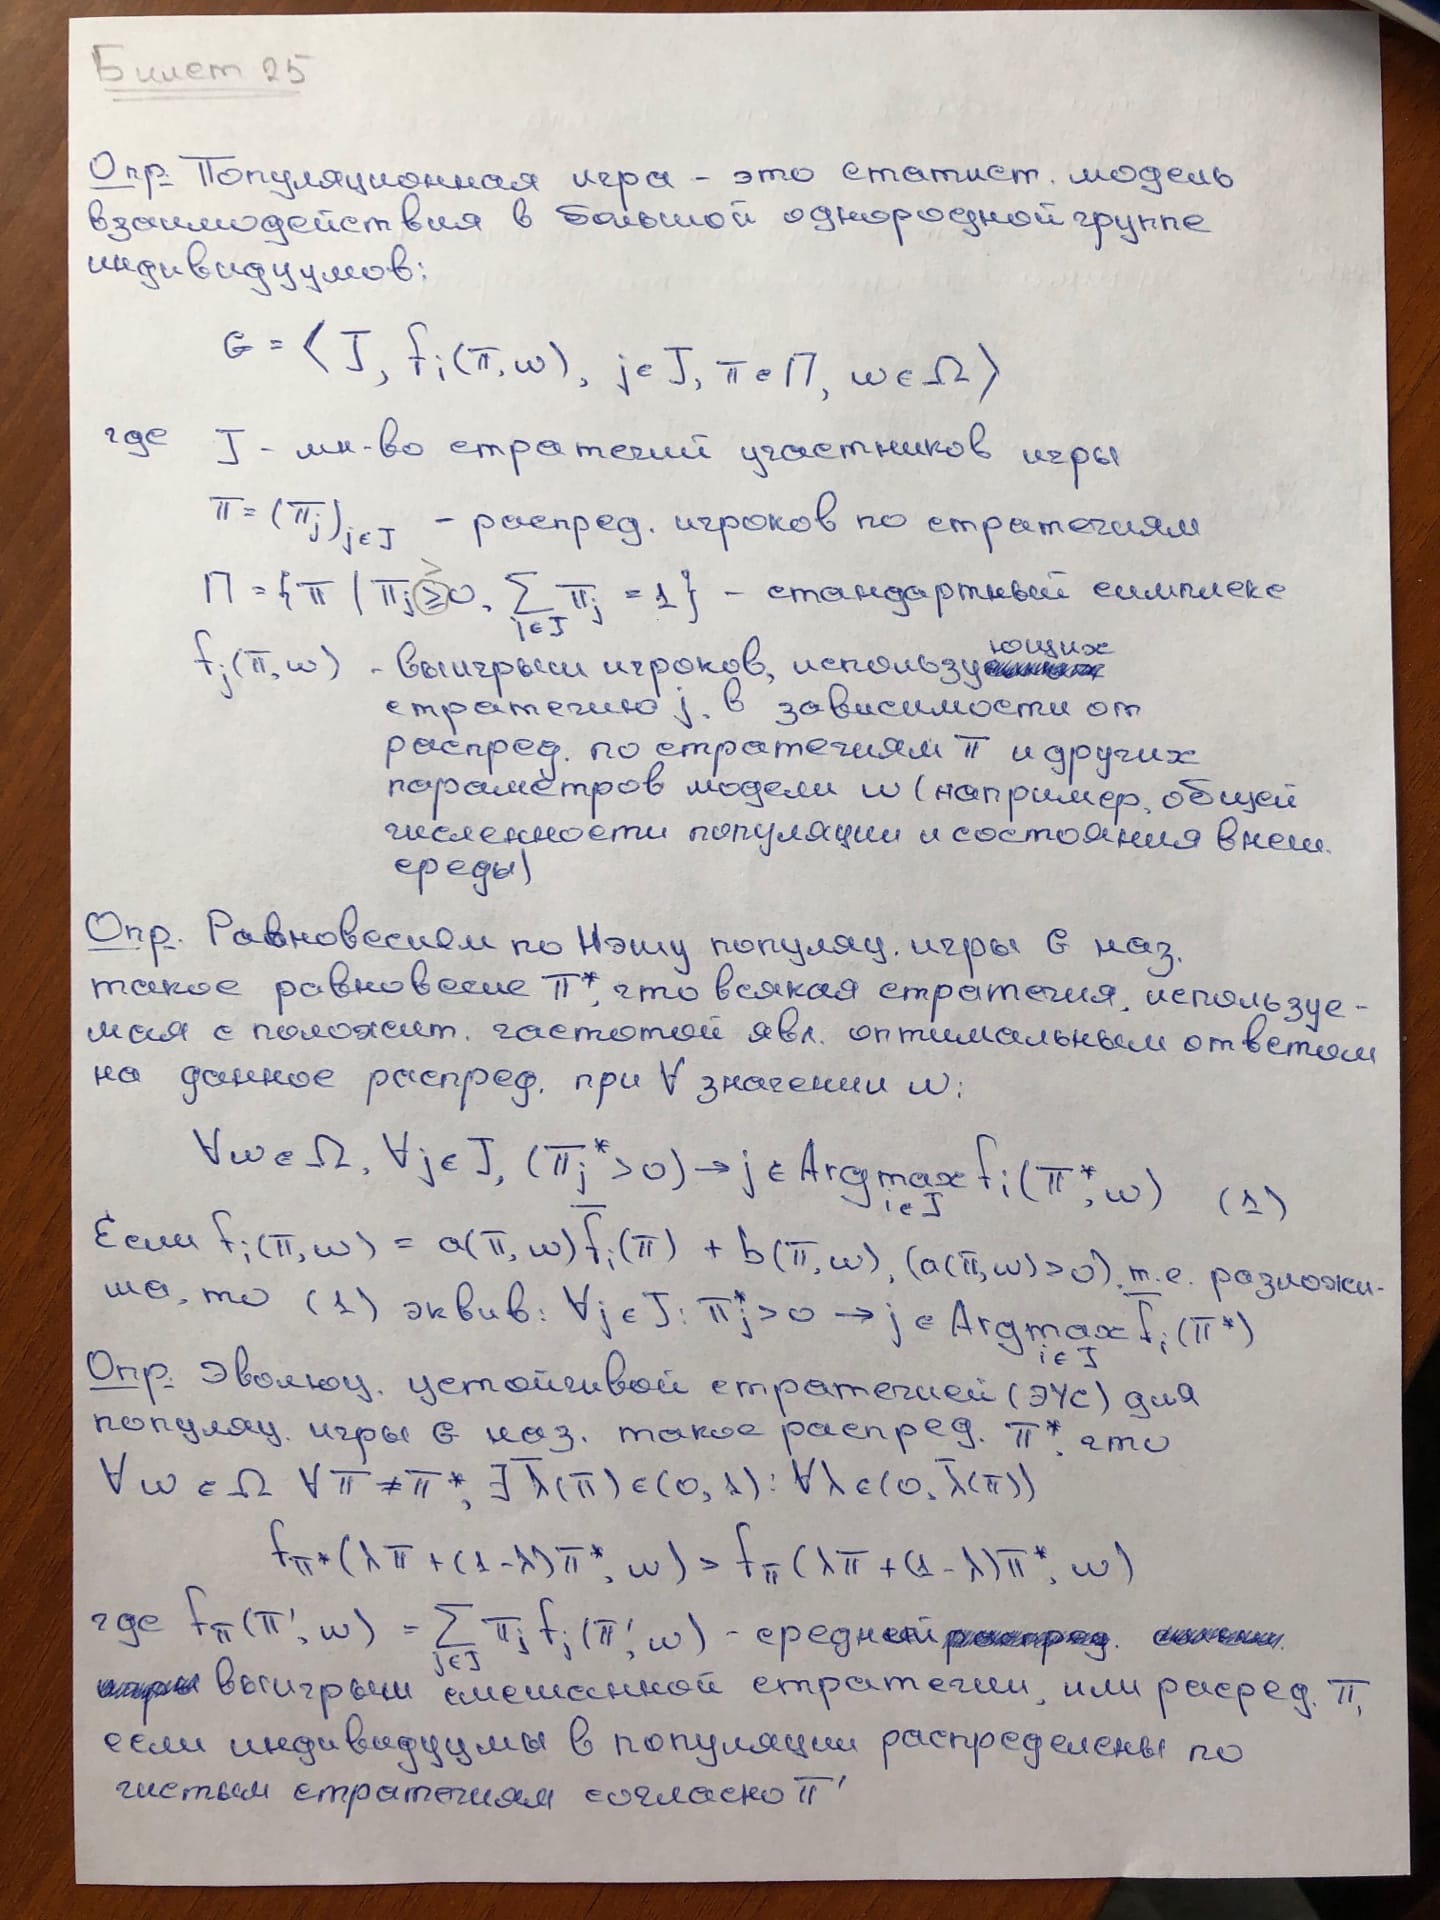 Билет 25
Опр. Популяционная игра - это статист. модель
взаимодействия в большой однородной группе
индивидуумов:
G = ⟨J, f_i(π, w), j∈J, π∈Π, w∈Ω⟩
где J - мн-во стратегий участников игры
π = (π_j)_{j∈J} - распред. игроков по стратегиям
Π = {π | π_j ≥ 0, ∑_{j∈J} π_j = 1} - стандартный симплекс
f_j(π, w) - выигрыш игроков, использующих
стратегию j, в зависимости от
распред. по стратегиям π и других
параметров модели w (например, общей
численности популяции и состояния внеш.
среды)
Опр. Равновесием по Нэшу популяц. игры G наз.
такое равновесие π*, что всякая стратегия, используе-
мая с положит. частотой явл. оптимальным ответом
на данное распред. при ∀ значении w:
∀w∈Ω, ∀j∈J, (π_j* > 0) → j∈Argmax_{i∈J} f_i(π*, w) (1)
Если f_i(π, w) = a(π, w) f̄_i(π) + b(π, w), (a(π, w) > 0), т.е. разложи-
ма, то (1) эквив: ∀j∈J: π_j* > 0 → j∈Argmax_{i∈J} f̄_i(π*)
Опр. Эволюц. устойчивой стратегией (ЭУС) для
популяц. игры G наз. такое распред. π*, что
∀w∈Ω ∀π≠π*, ∃λ̄(π)∈(0, 1): ∀λ∈(0, λ̄(π))
f_{π*}(λπ + (1-λ)π*, w) > f_π(λπ + (1-λ)π*, w)
где f_π(π', w) = ∑_{j∈J} π_j f_j(π', w) - средний
выигрыш смешанной стратегии, или расред. π,
если индивидуумы в популяции распределены по
чистым стратегиям согласно π'